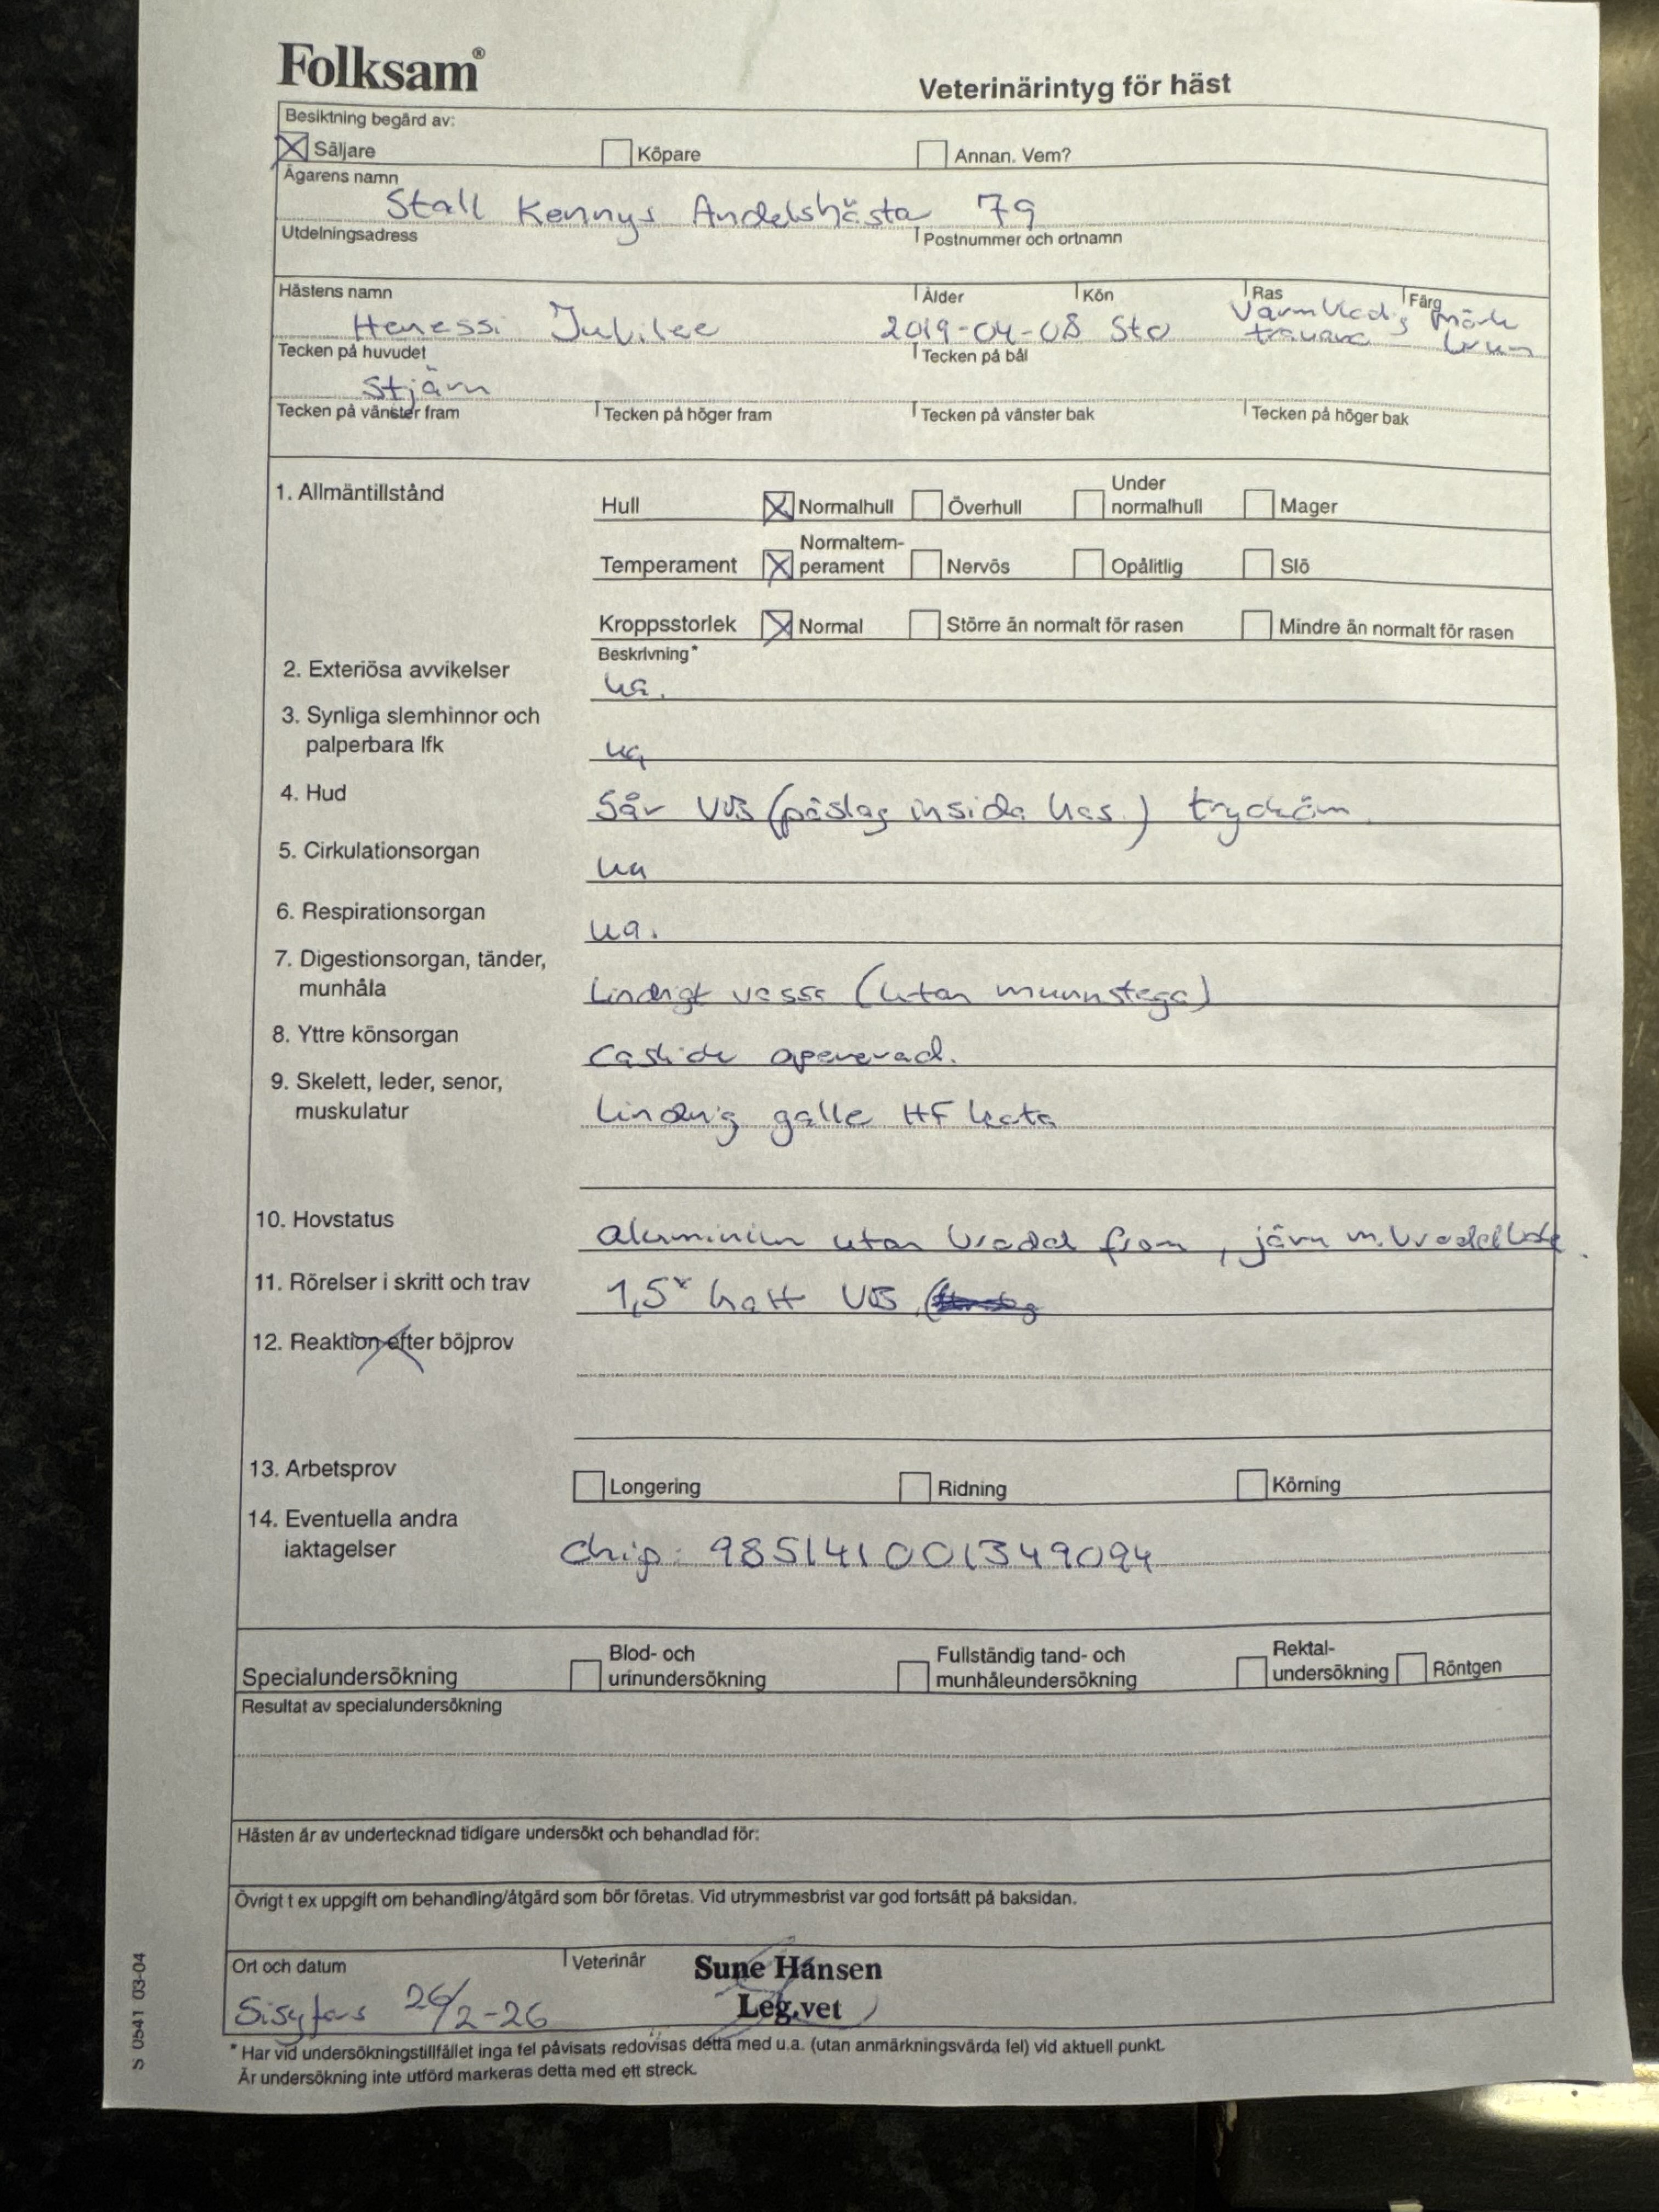 Folksam®
Veterinärintyg för häst
Besiktning begärd av:
Säljare Köpare Annan. Vem?
Ägarens namn
Stall Kennys Andelshästa 79
Utdelningsadress Postnummer och ortnamn
Hästens namn Ålder Kön Ras Färg
Henessi Jubilee 2019-04-08 Sto Varmblodig Mörk
travare brun
Tecken på huvudet Tecken på bål
Stjärn
Tecken på vänster fram Tecken på höger fram Tecken på vänster bak Tecken på höger bak
1. Allmäntillstånd
Hull Normalhull Överhull Under normalhull Mager
Temperament Normaltem-
perament Nervös Opålitlig Slö
Kroppsstorlek Normal Större än normalt för rasen Mindre än normalt för rasen
Beskrivning*
2. Exteriösa avvikelser ua.
3. Synliga slemhinnor och
palperbara lfk ua
4. Hud Sår VB (påslag insida has.) trycköm
5. Cirkulationsorgan ua
6. Respirationsorgan ua.
7. Digestionsorgan, tänder,
munhåla Lindrigt vassa (utan munstege)
8. Yttre könsorgan caslick opererad.
9. Skelett, leder, senor,
muskulatur Lindrig galle HF kota
10. Hovstatus aluminium utan brodd fram, järn m. brodd bak.
11. Rörelser i skritt och trav 1,5° halt VB
12. Reaktion efter böjprov
13. Arbetsprov Longering Ridning Körning
14. Eventuella andra
iaktagelser Chip: 985141001349094
Specialundersökning Blod- och
urinundersökning Fullständig tand- och
munhåleundersökning Rektal-
undersökning Röntgen
Resultat av specialundersökning
Hästen är av undertecknad tidigare undersökt och behandlad för:
Övrigt t ex uppgift om behandling/åtgärd som bör företas. Vid utrymmesbrist var god fortsätt på baksidan.
Ort och datum Veterinär Sune Hansen
26/2-26 Leg.vet
* Har vid undersökningstillfället inga fel påvisats redovisas detta med u.a. (utan anmärkningsvärda fel) vid aktuell punkt.
Är undersökning inte utförd markeras detta med ett streck.
S 0541 03-04